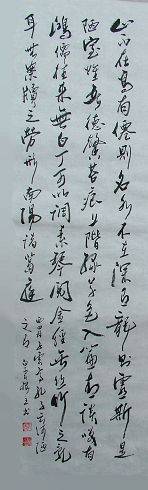 山不在高有僊則名水不在深有龍則靈斯是
陋室惟吾德馨苔痕上階緑草色入簾青談笑有
鴻儒往来無白丁可以調素琴閲金經無丝竹之亂
耳無案牘之勞形南陽諸葛廬
西蜀子雲亭孔子云何陋
之有